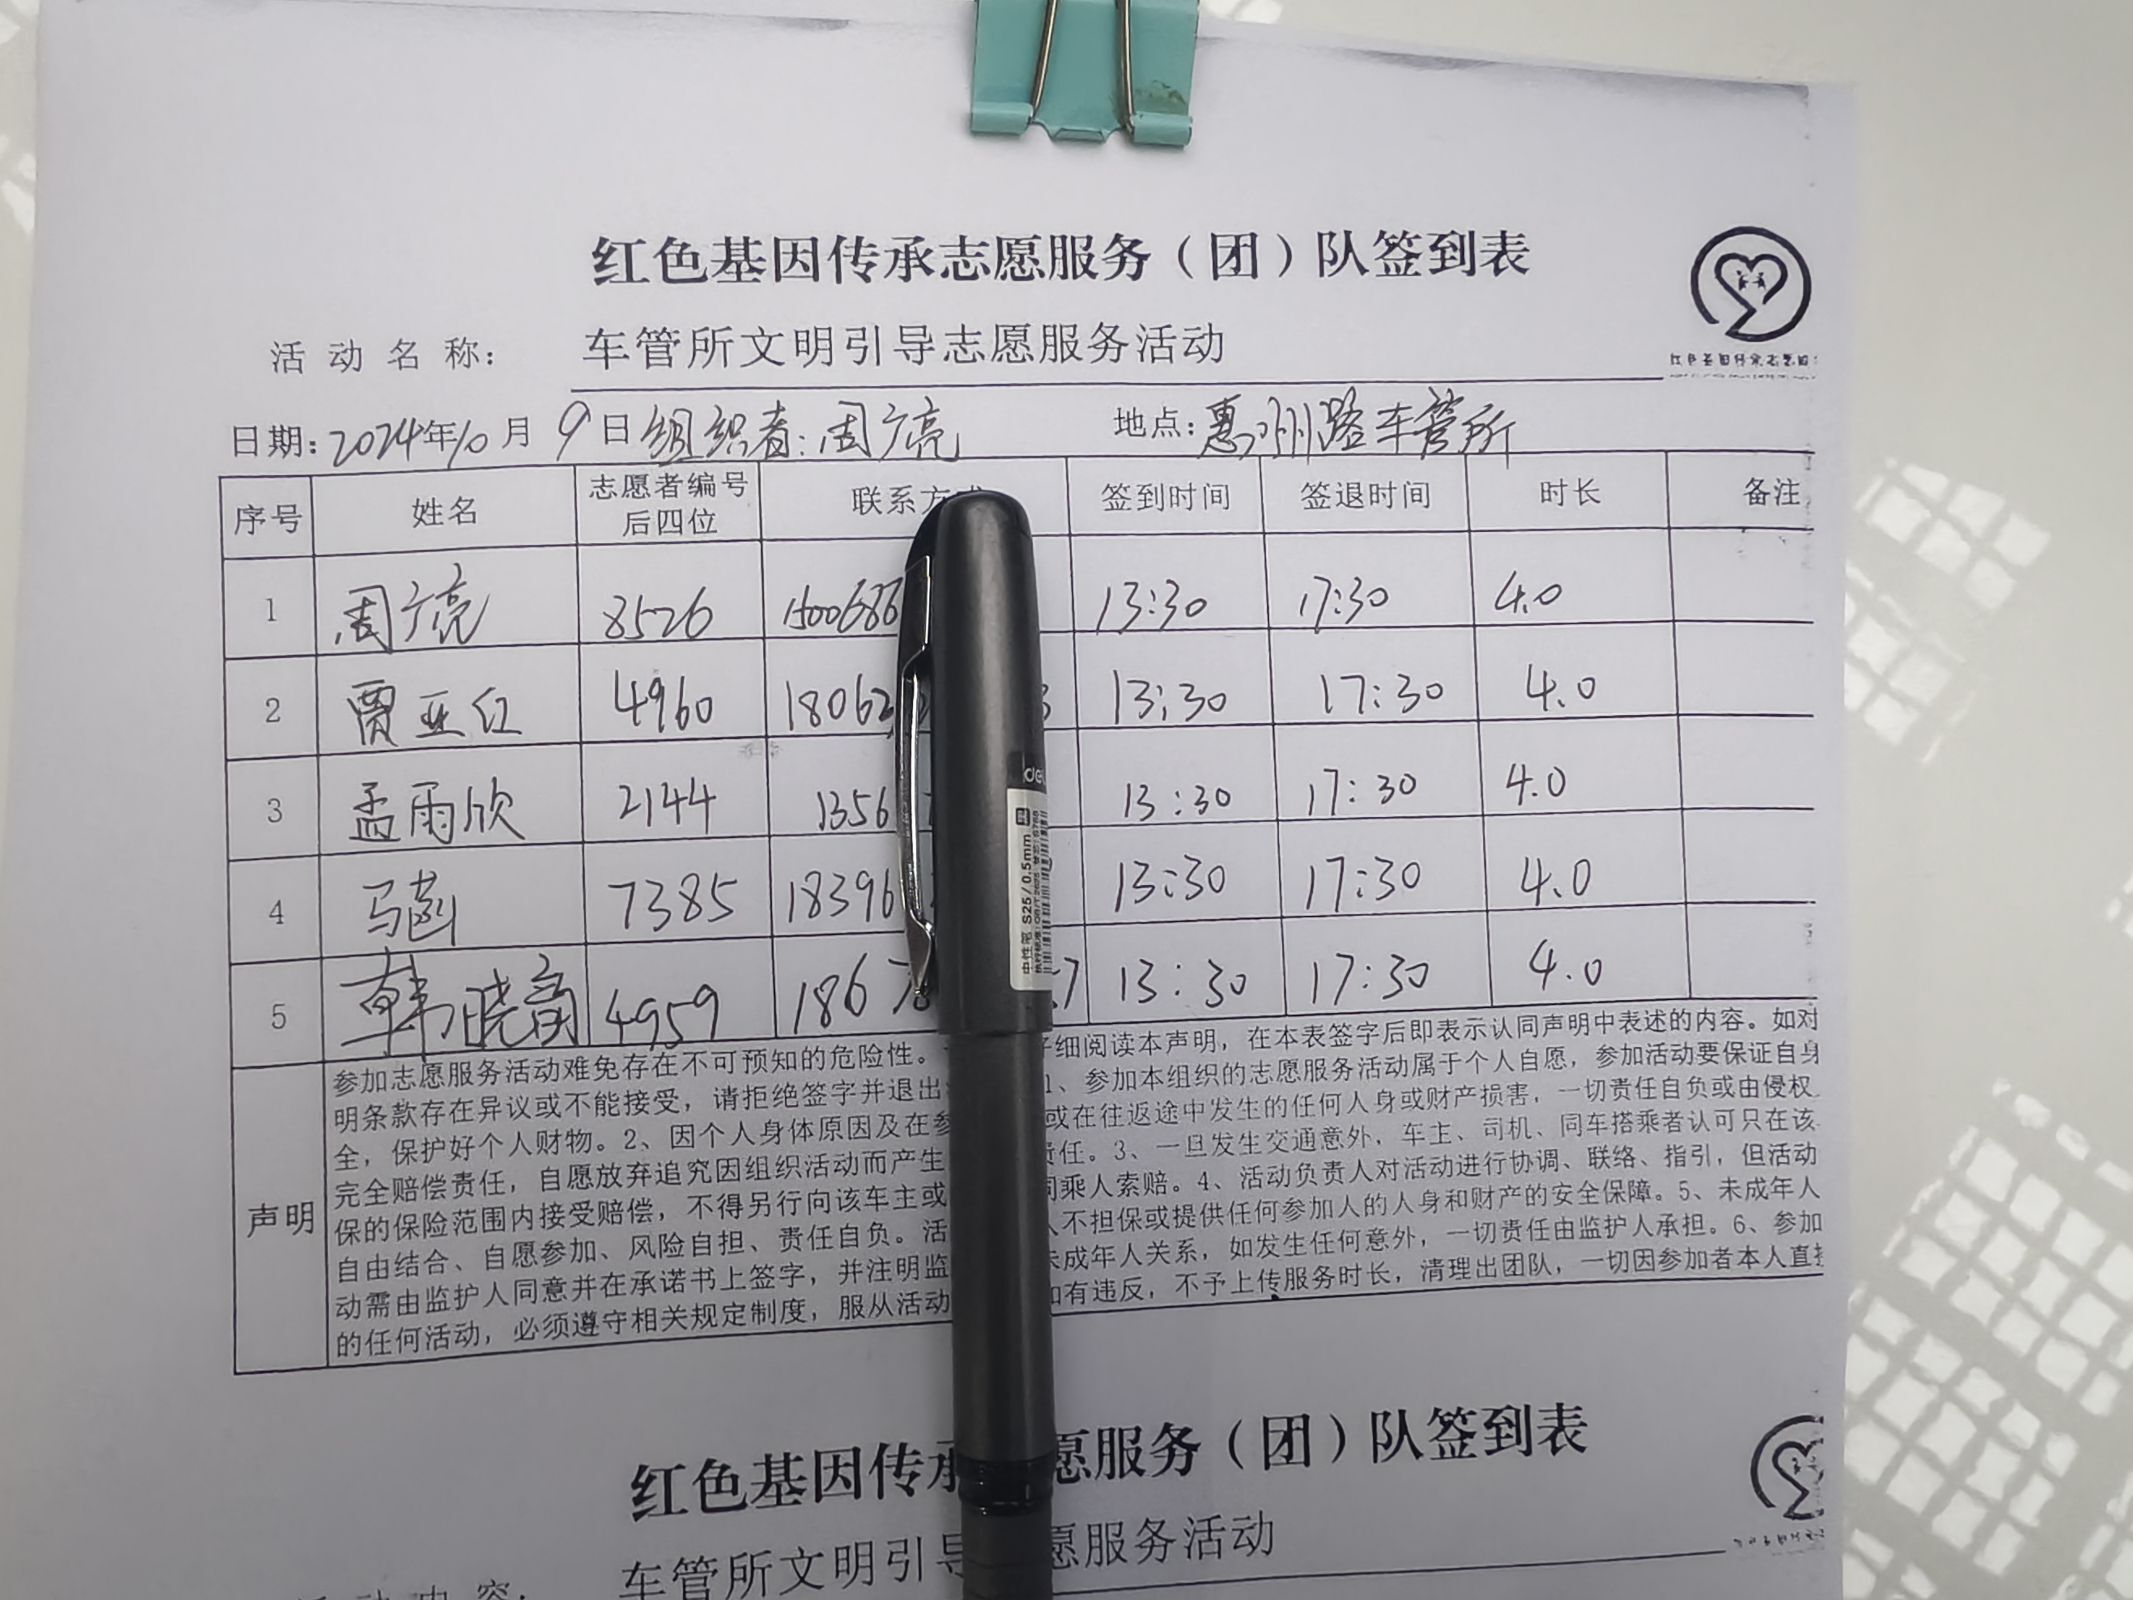 红色基因传承志愿服务（团）队签到表
活动名称： 车管所文明引导志愿服务活动
日期：2024年10月9日 组织者：周广亮 地点：惠州路车管所
序号 姓名 志愿者编号后四位 联系方式 签到时间 签退时间 时长 备注
1 周广亮 8526 1500686 13:30 17:30 4.0
2 贾亚红 4960 18062 3 13:30 17:30 4.0
3 孟雨欣 2144 1356 13:30 17:30 4.0
4 马菡 7385 18396 13:30 17:30 4.0
5 韩晓 4959 1867 7 13:30 17:30 4.0
声明
参加志愿服务活动难免存在不可预知的危险性。 仔细阅读本声明，在本表签字后即表示认同声明中表述的内容。如对
明条款存在异议或不能接受，请拒绝签字并退出 1、参加本组织的志愿服务活动属于个人自愿，参加活动要保证自身
全，保护好个人财物。2、因个人身体原因及在参 或在往返途中发生的任何人身或财产损害，一切责任自负或由侵权
完全赔偿责任，自愿放弃追究因组织活动而产生 责任。3、一旦发生交通意外，车主、司机、同车搭乘者认可只在该
保的保险范围内接受赔偿，不得另行向该车主或 同乘人索赔。4、活动负责人对活动进行协调、联络、指引，但活动
自由结合、自愿参加、风险自担、责任自负。活 人不担保或提供任何参加人的人身和财产的安全保障。5、未成年人
动需由监护人同意并在承诺书上签字，并注明监 未成年人关系，如发生任何意外，一切责任由监护人承担。6、参加
的任何活动，必须遵守相关规定制度，服从活动 如有违反，不予上传服务时长，清理出团队，一切因参加者本人直接
中性笔 S25/0.5mm
红色基因传承 愿服务（团）队签到表
车管所文明引导 愿服务活动